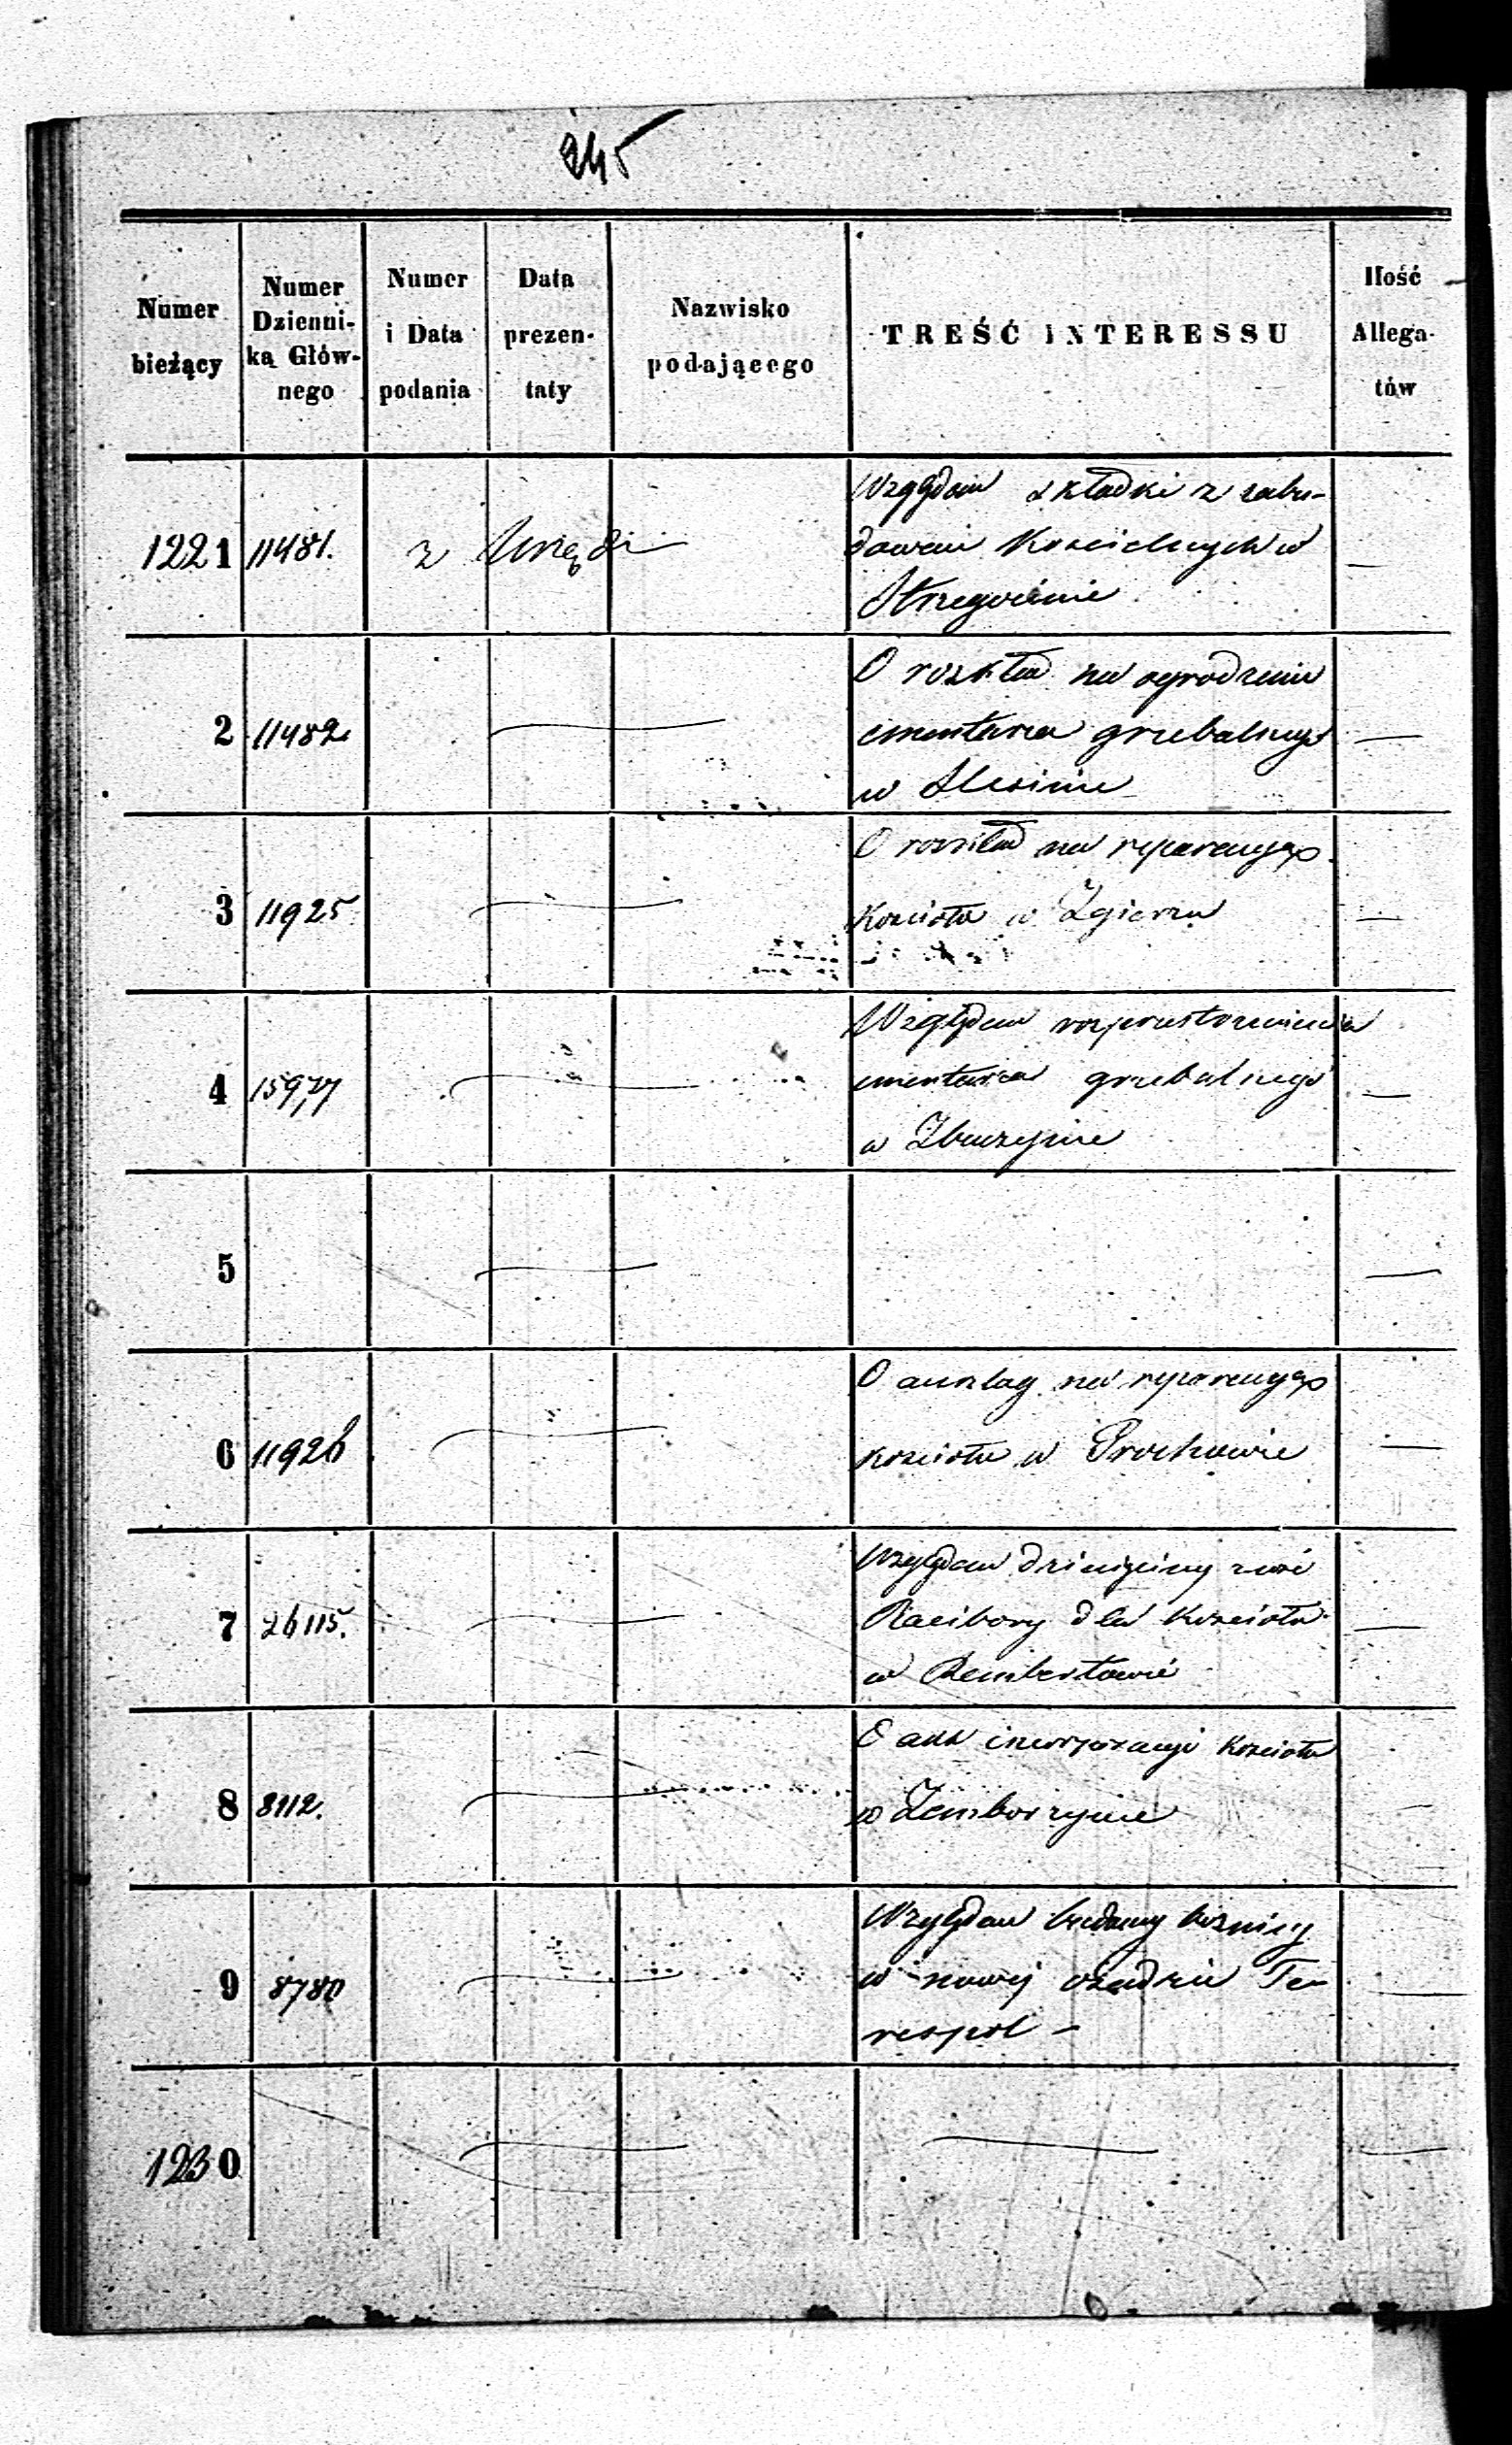 245
Numer bieżący
Numer Dzienni- ką Głów- nego
Numer i Data podania
Data prezen- taty
Nazwisko podającego
TREŚĆ INTERESSU
Ilość Allega- tów
1221 11481. z Urzędu Względem składki z zabu-
dowań Kościelnych w
Strzegocinie
—
2 11482 — O rozkład na ogrodzenie
cmentarza grzebalnego
w Slesinie
—
3 11925 — O rozkład na reparacyą
Kościoła w Zgierzu
—
4 — Względem rozprzestrzenienia
cmentarza grzebalnego
w Zbuczynie
—
5 — —
6 11926 — O na reparacyą
kościoła w Prochowie
—
7 26115. — Względem dziesięciny z wsi
Racibory dla Kościoła
w Rembertowie
—
8 8112. — O akt inkorporacyi Kościoła
w Zemborzynie
—
9 8780 — Względem budowy bożnicy
w nowej osadzie Te-
respol —
—
1230 — — —